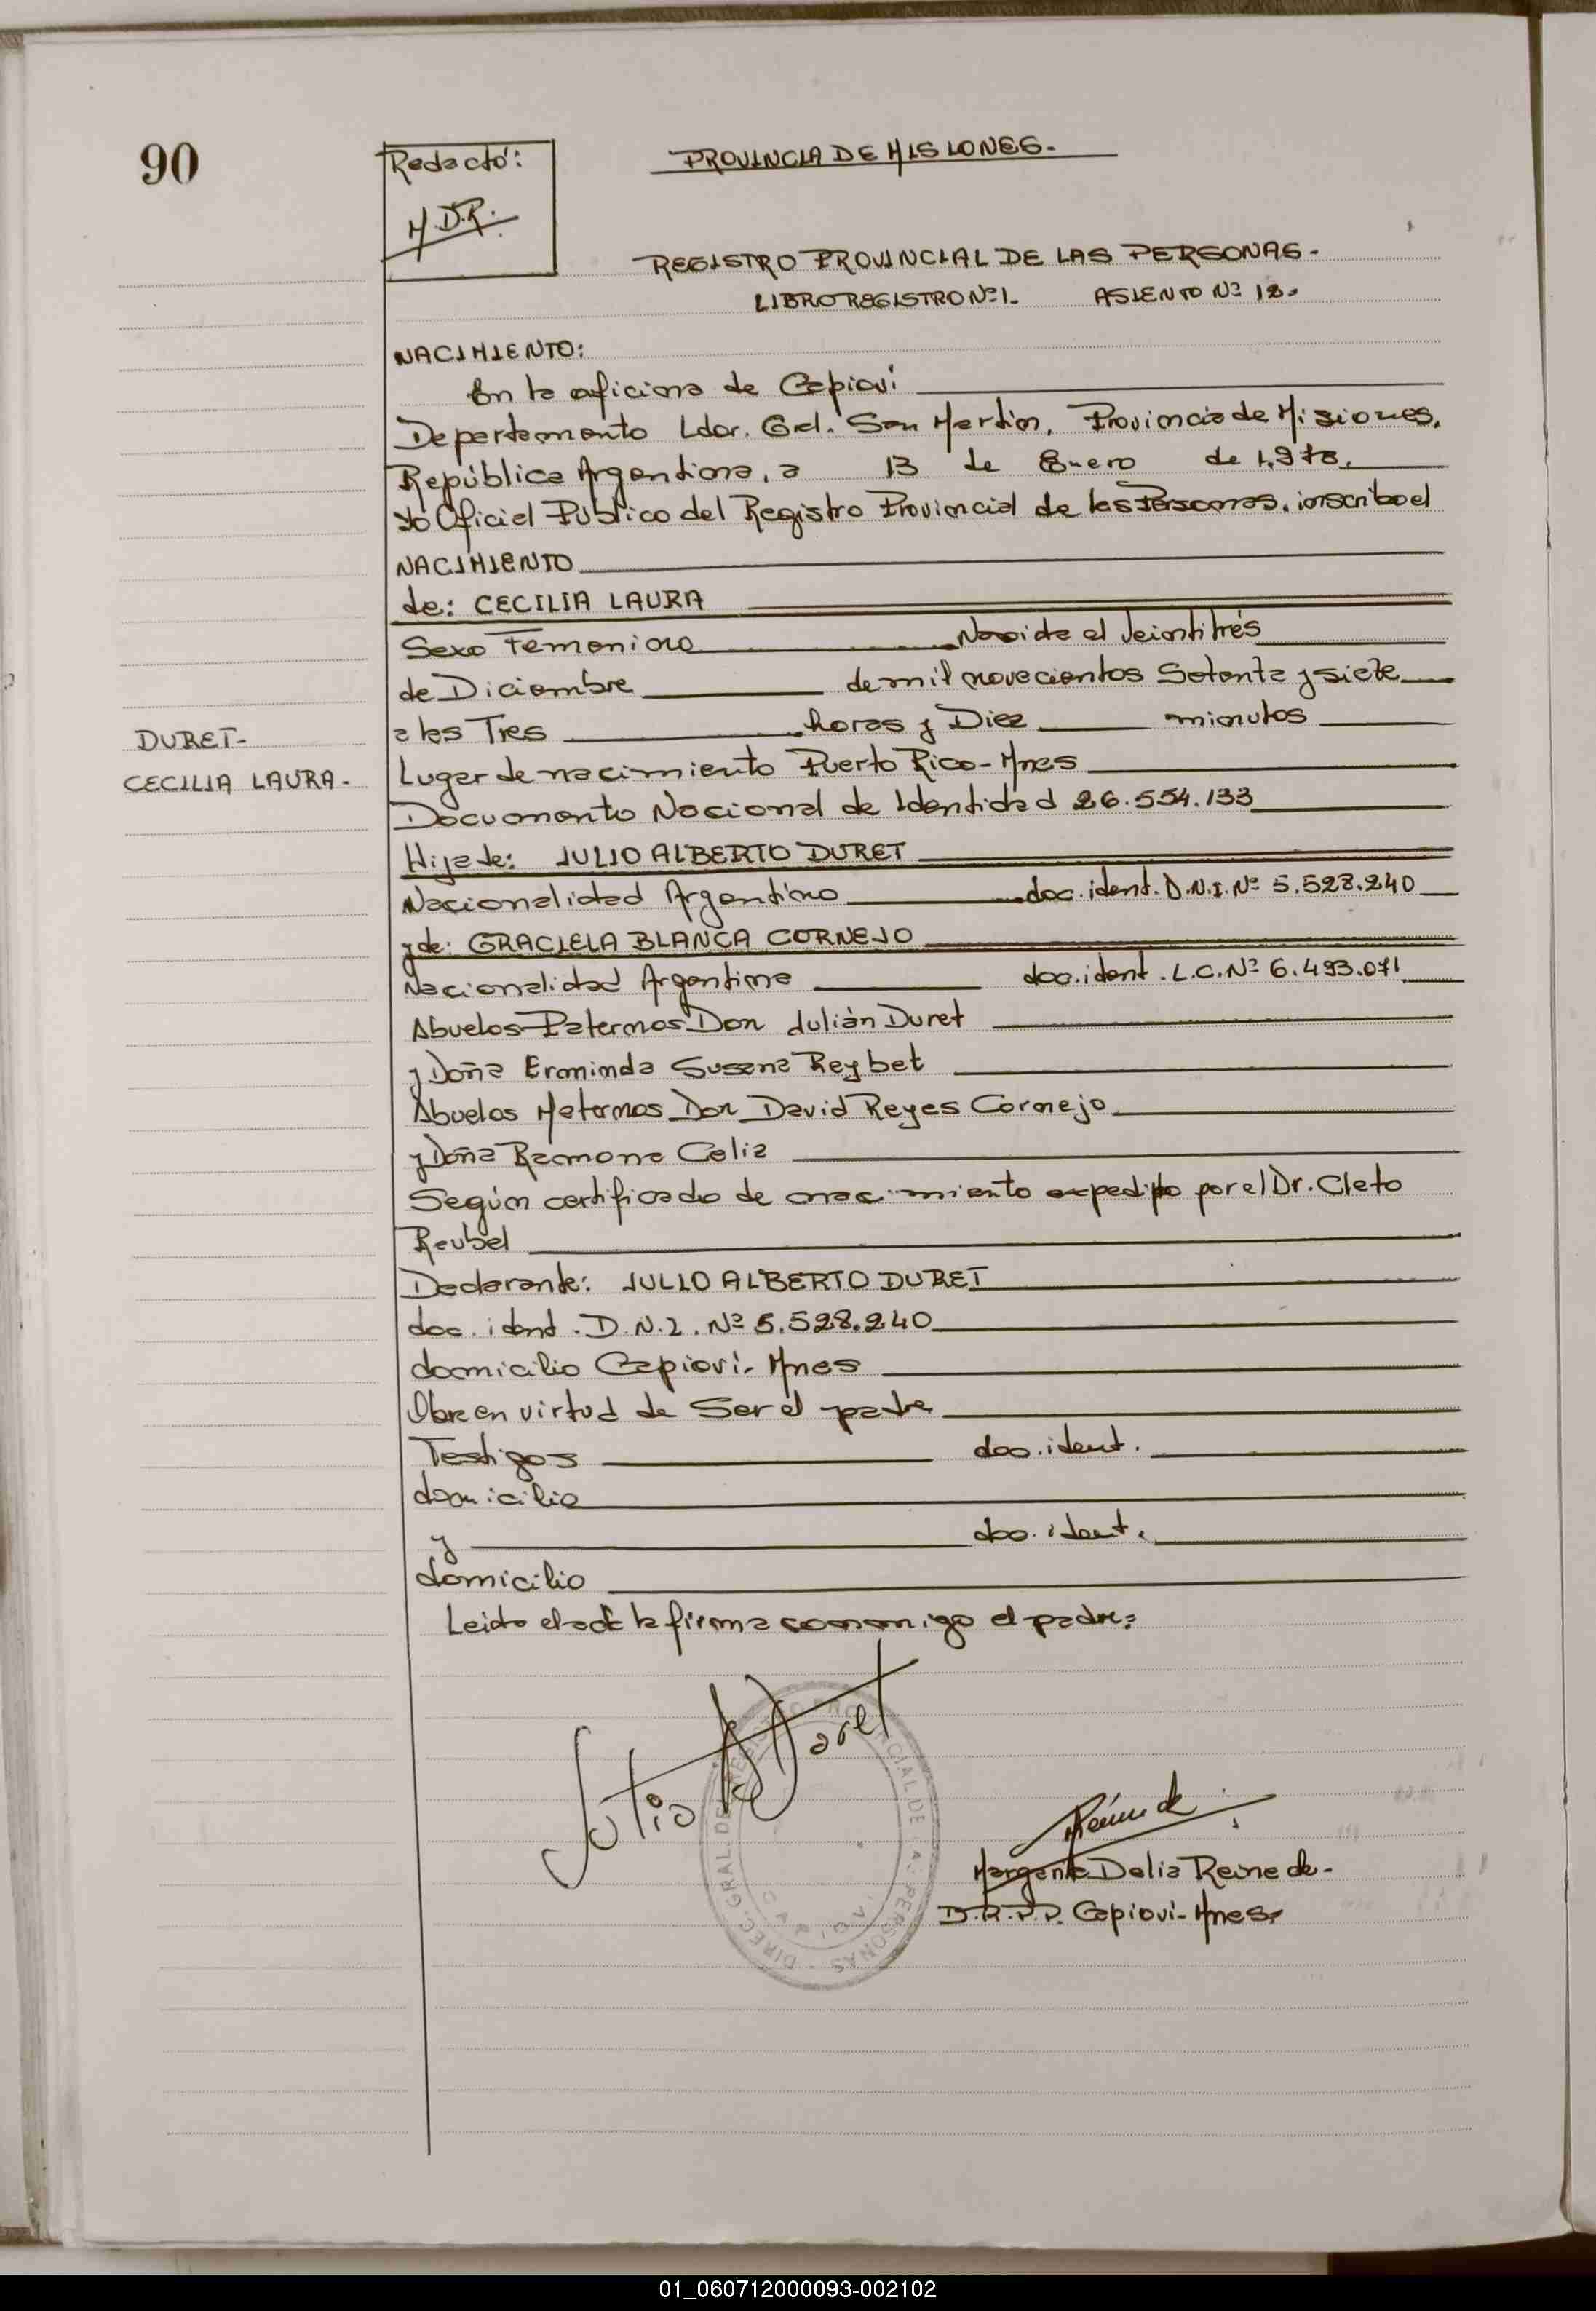 90
Redactó:
M.D.R.
PROVINCIA DE MISIONES.-
REGISTRO PROVINCIAL DE LAS PERSONAS.-
LIBRO REGISTRO Nº 1.- ASIENTO Nº 12.
NACIMIENTO:
En la oficina de Capioví
Departamento Ldor. Gral. San Martín, Provincia de Misiones,
República Argentina, a 13 de Enero de 1,978.
Yo Oficial Público del Registro Provincial de las Personas, inscribo el
NACIMIENTO
de: CECILIA LAURA
Sexo Femenino Nacida el Veintitrés
de Diciembre de mil novecientos Setenta y siete
a las Tres horas y Diez minutos
DURET-
CECILIA LAURA-
Lugar de nacimiento Puerto Rico-Mnes
Documento Nacional de Identidad 26.554.133
Hija de: JULIO ALBERTO DURET
Nacionalidad Argentino doc. ident. D.N.I. Nº 5.528.240
y de: GRACIELA BLANCA CORNEJO
Nacionalidad Argentina doc. ident. L.C. Nº 6.493.071
Abuelos Paternos Don Julián Duret
y Doña Erminda Susana Reybet
Abuelos Maternos Don David Reyes Cornejo
y Doña Ramona Celia
Según certificado de nacimiento expedido por el Dr. Cleto
Reubel
Declarante: JULIO ALBERTO DURET
doc. ident. D.N.I. Nº 5.528.240
domicilio Capioví- Mnes
Obra en virtud de Ser el padre
Testigos doc. ident.
domicilio
y doc. ident.
domicilio
Leida el acta la firma conmigo el padre:
Julio A Duret
DIREC. GRAL. DEL REGISTRO PROVINCIAL DE LAS PERSONAS
CAPIOVI
Margarita Delia Reinede-
D.R.P.P. Capioví-Mnes.
01_060712000093-002102